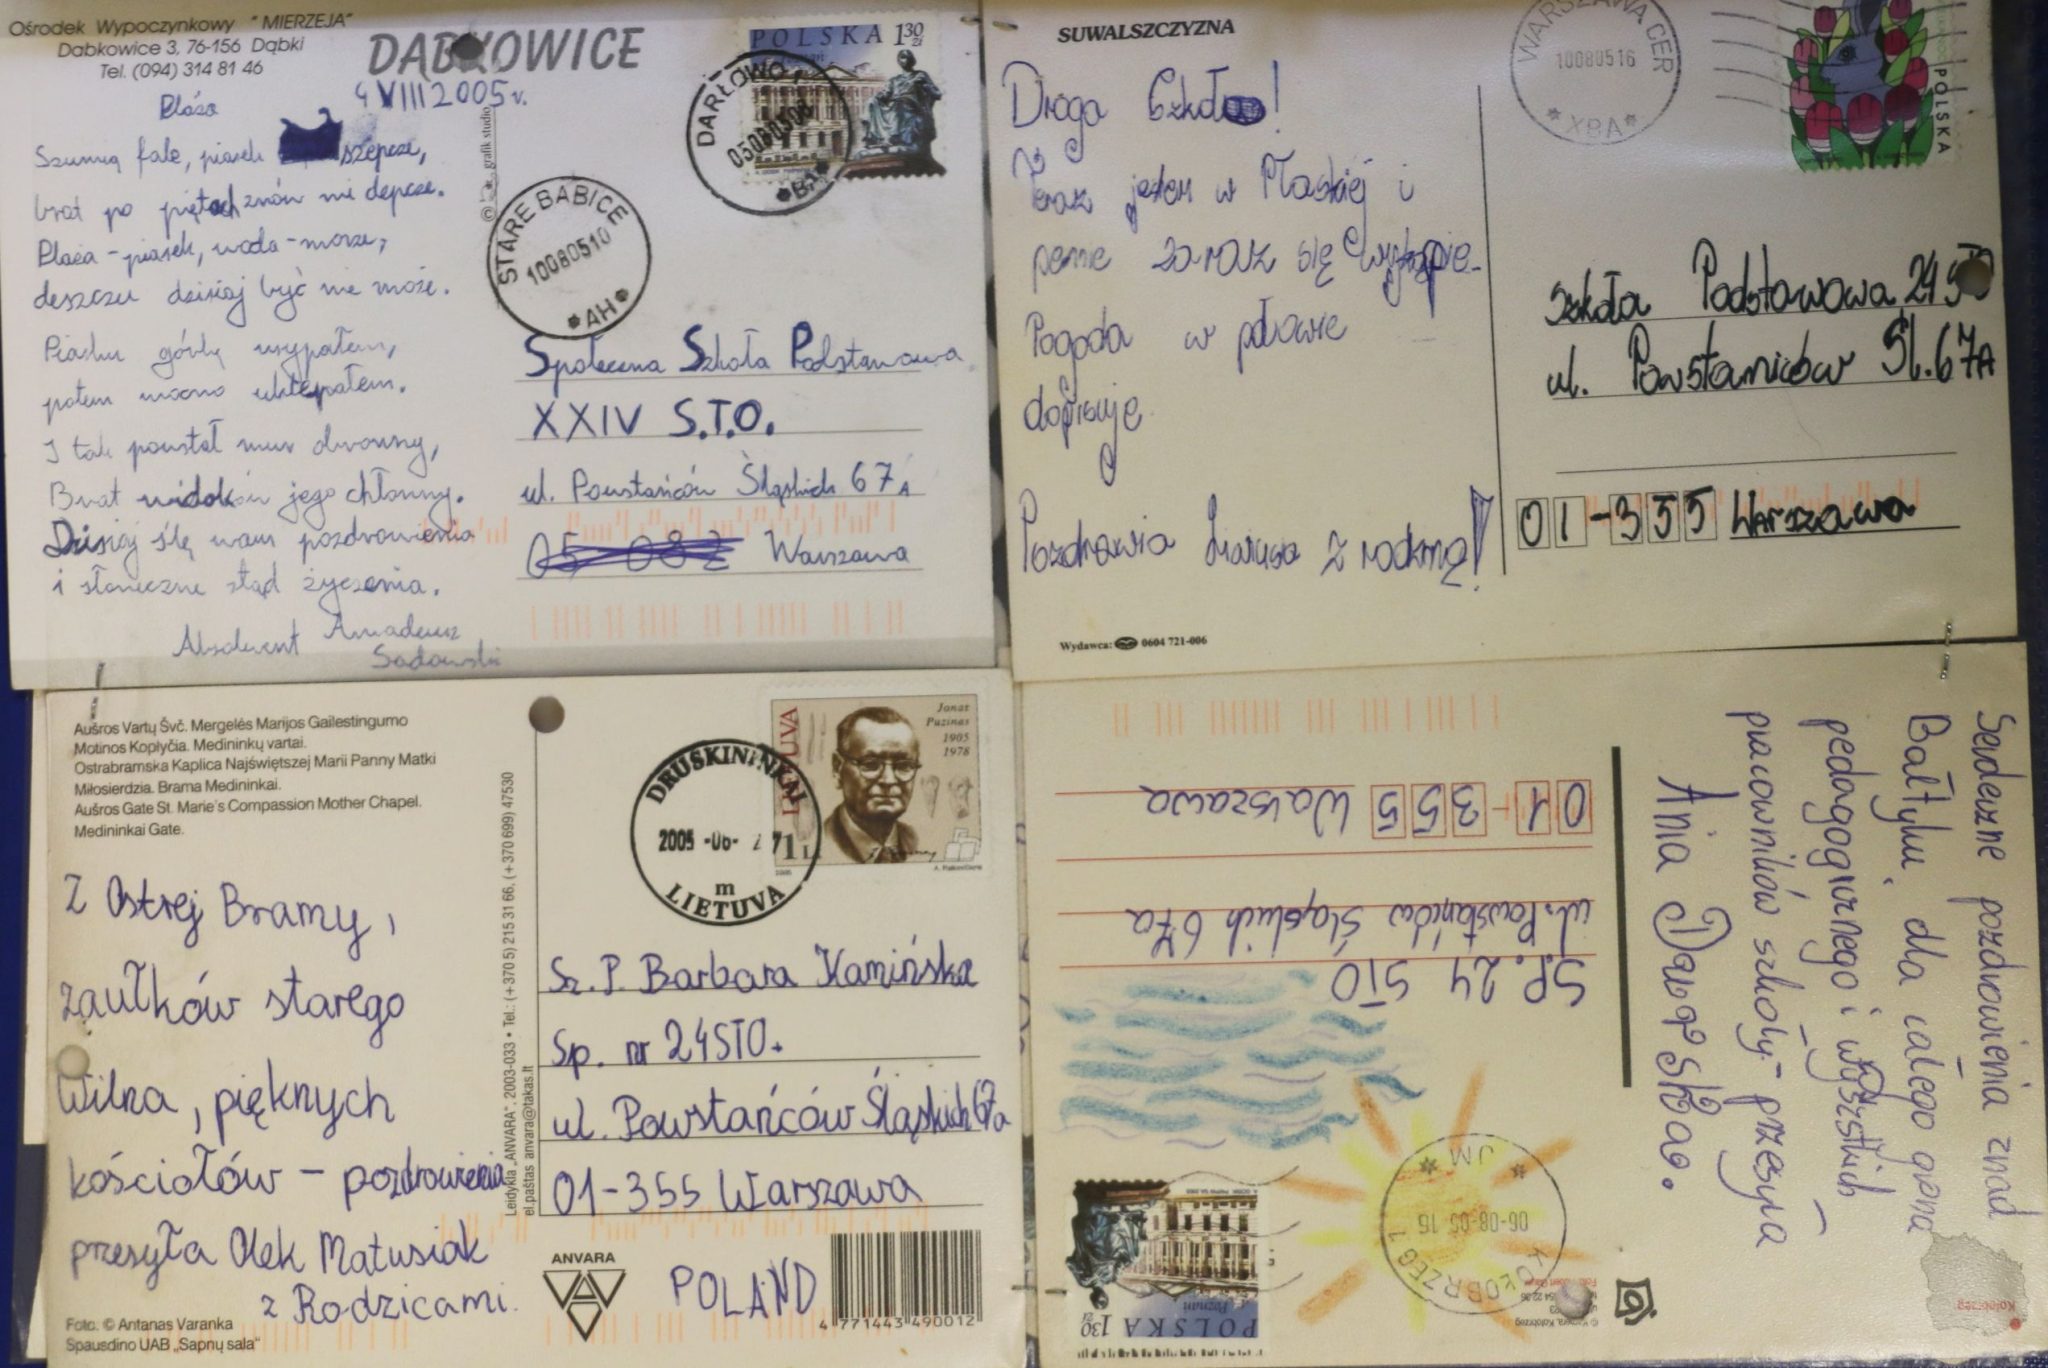 Ośrodek Wypoczynkowy "MIERZEJA"
Dabkowice 3, 76-156 Dąbki
Tel. (094) 314 81 46
DĄBKOWICE
4 VIII 2005 r.
Plaża
Szumią fale, piasek szepcze,
brat po piętach znów mi depcze.
Plaża - piasek, woda - morze,
deszczu dzisiaj być nie może.
Piasku górkę usypałem,
potem mocno uklepałem.
I tak powstał mur obronny,
Brat widoków jego chłonny.
Dzisiaj ślę wam pozdrowienia
i słoneczne stąd życzenia.
Absolwent Amadeusz
Sadowski
grafik studio
POLSKA 1,30 zł
DARŁOWO 1
05080508
*BA*
STARE BABICE
10080510
*AH*
Społeczna Szkoła Podstawowa
XXIV S.T.O.
ul. Powstańców Śląskich 67A
05-082 Warszawa
SUWALSZCZYZNA
Droga Szkoło!
Teraz jestem w Płaskiej i
pewnie zaraz się wykąpię.
Pogoda w połowie
dopisuje.
Pozdrawia z rodziną!
Wydawca: 0604 721-006
WARSZAWA CER
10080516
*XBA*
POLSKA
Szkoła Podstawowa 24 STO
ul. Powstańców Śl. 67A
01-355 Warszawa
Aušros Vartų Švč. Mergelės Marijos Gailestingumo
Motinos Koplyčia. Medininkų vartai.
Ostrabramska Kaplica Najświętszej Marii Panny Matki
Miłosierdzia. Brama Medininkai.
Aušros Gate St. Marie's Compassion Mother Chapel.
Medininkai Gate.
Z Ostrej Bramy,
zaułków starego
Wilna, pięknych
kościołów - pozdrowienia
przesyła Olek Matusiak
z Rodzicami.
Foto: © Antanas Varanka
Spausdino UAB „Sapnų sala"
Leidykla „ANVARA", 2003-033 • Tel.: (+370 5) 215 31 66, (+370 699) 47530
el.paštas anvara@takas.lt
DRUSKININKAI
2005 -06-
m
LIETUVA
LIETUVA
Jonas
Puzinas
1905
1978
1 L
2005
Sz. P. Barbara Kamińska
Sp. nr 24 STO.
ul. Powstańców Śląskich 67a
01-355 Warszawa
POLAND
ANVARA
4 771443 490012
Serdeczne pozdrowienia znad
Bałtyku, dla całego grona
pedagogicznego i wszystkich
pracowników szkoły - przesyła
Ania
SP. 24 STO
ul. Powstańców Śląskich 67a
01-355 Warszawa
KOŁOBRZEG 1
06-08-05-15
* JM *
POLSKA 1,30 zł
Poznań
Kołobrzeg